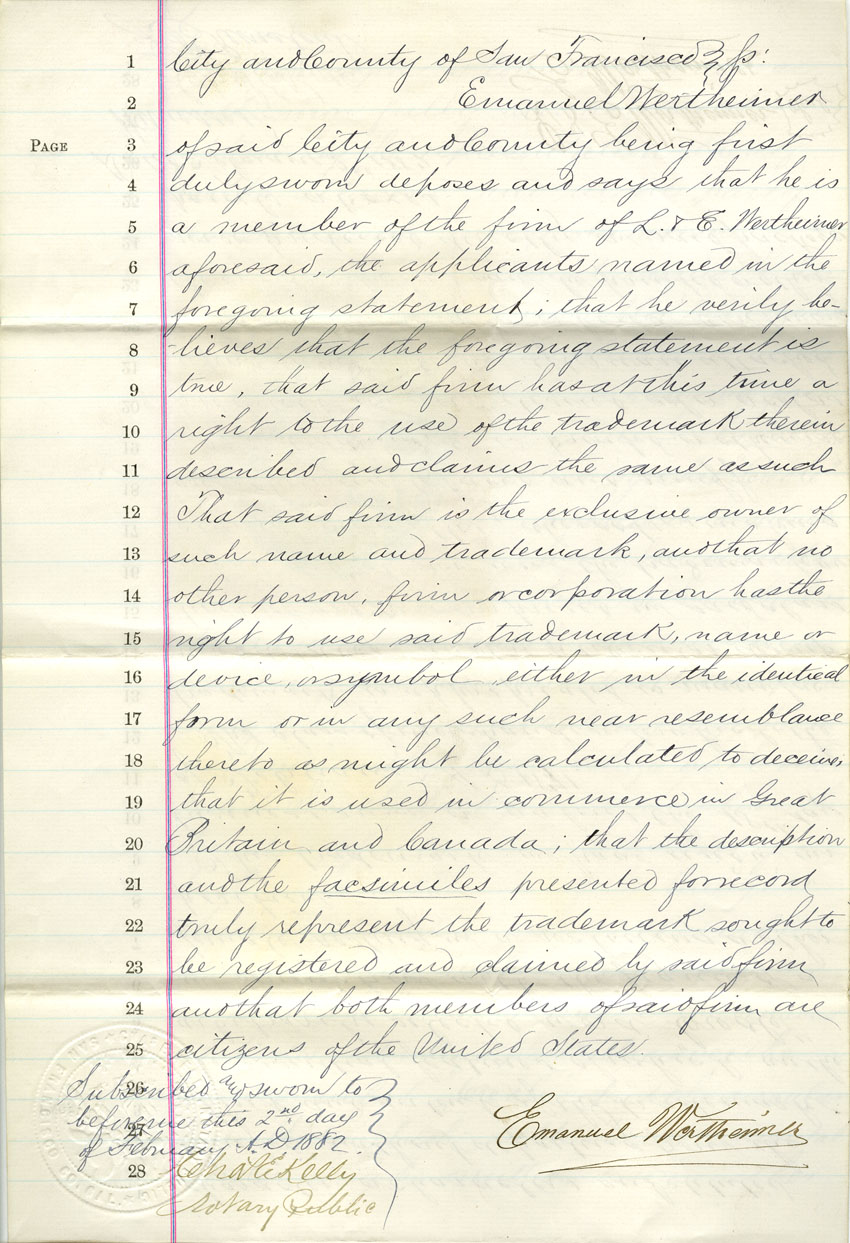 1 City and County of San Francisco } ss:
2 Emanuel Wertheimer
PAGE 3 of said City and County being first
4 duly sworn deposes and says that he is
5 a member of the firm of L. & E. Wertheimer
6 aforesaid, the applicants named in the
7 foregoing statement; that he verily be-
8 -lieves that the foregoing statement is
9 true, that said firm has at this time a
10 right to the use of the trademark therein
11 described and claims the same as such
12 That said firm is the exclusive owner of
13 such name and trademark, and that no
14 other person, firm or corporation has the
15 right to use said trademark, name or
16 device, or symbol either in the identical
17 form or in any such near resemblance
18 thereto as might be calculated to deceive,
19 that it is used in commerce in Great
20 Britain and Canada; that the description
21 and the facsimiles presented for record
22 truly represent the trademark sought to
23 be registered and claimed by said firm
24 and that both members of said firm are
25 citizens of the United States.
26 Subscribed and sworn to
27 before me this 2nd day
of February A.D 1882.
Emanuel Wertheimer
28 Kelly
Notary Public